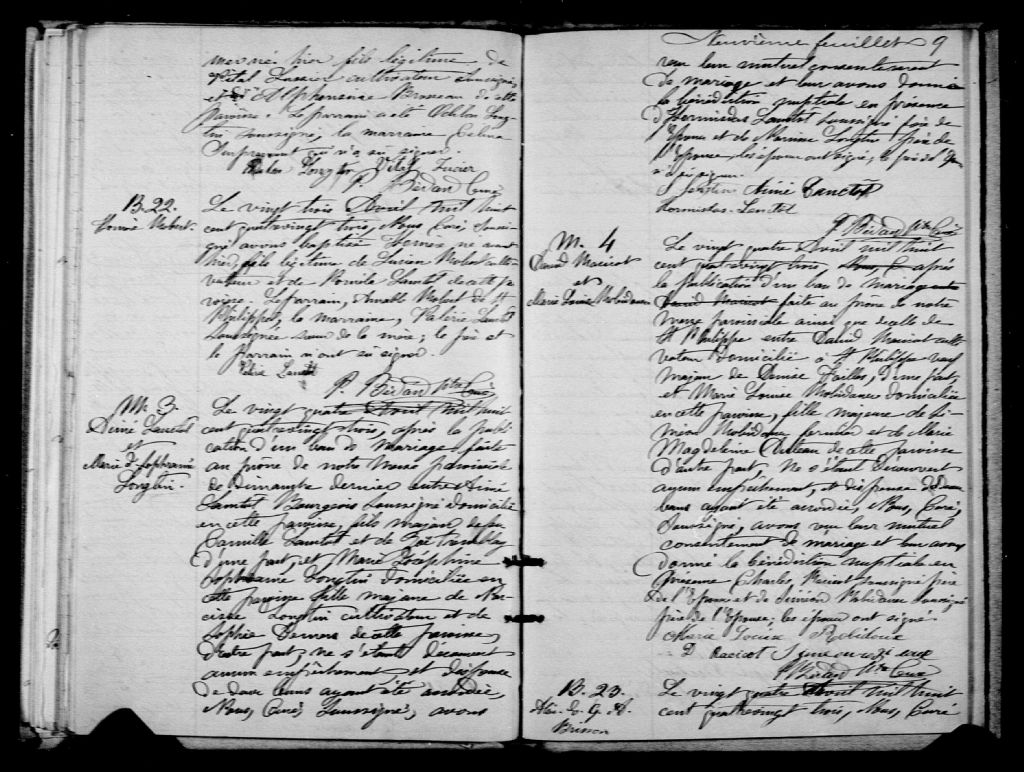 né hier fils légitime de
Vital Lussier cultivateur soussigné,
et de Alphonsine Brosseau de cette
paroisse. Le parrain a été Odilon Long-
tin soussigné, la marraine Célina
Surprenant qui n'a su signer.
Odilon Longtin Vital Lucier
P. Bédard Curé
B. 22.
Robert.
Le vingt trois Avril mil huit
cent quatrevingt trois, Nous, Curé, sous-
signé avons baptisé né avant
hier, fils légitime de Lucien Robert culti-
vateur et de Roméla Lanctôt de cette pa-
roisse. Le parrain, Amable Robert de St
Philippe, la marraine, Valérie Lanctôt
soussignée soeur de la mère; le père et
le parrain n'ont su signer.
Lanctôt
P. Bédard ptre Curé
M. 3.
Aimé Lanctot
et
Marie J. Sophranie
Longtin.
Le vingt quatre Avril mil huit
cent quatrevingt trois, après la publi-
cation d'un ban de mariage faite
au prône de notre messe paroissiale
de dimanche dernier entre Aimé
Lanctôt Bourgeois soussigné domicilié
en cette paroisse, fils majeur de feu
Camille Lanctot et de Zoé Trembley
d'une part, et Marie Joséphine
Sophranie Longtin domiciliée en
cette paroisse fille majeure de Nar-
cisse Longtin cultivateur et de
Sophie de cette paroisse,
d'autre part; ne s'étant découvert
aucun empêchement, et dispense
de deux bans ayant été accordée,
Nous, Curé, Soussigné, avons
Neuvième feuillet 9
reçu leur mutuel consentement
de mariage et leur avons donné
la bénédiction nuptiale en présence
d'Hormisdas Lanctot soussigné frère de
l'Epoux et de Narcisse Longtin père de
l'Epouse, les époux ont signé, le père de l'épouse
n'a su signer.
Aimé Lanctôt
Hormisdas Lanctot
P. Bédard ptre Curé
M. 4
David Racicot
et
Marie Louise Robidoux
Le vingt quatre Avril mil huit
cent quatrevingt trois, Nous, C après
la publication d'un ban de mariage entre
David Racicot faite au prône de notre
messe paroissiale ainsi que de celle de
St Philippe entre David Racicot culti-
vateur domicilié à St Philippe
majeur de Denise Failles, d'une part,
et Marie Louise Robidoux domiciliée
en cette paroisse, fille majeure de Si-
méon Robidoux fermier et de Marie
Magdeleine de cette paroisse
d'autre part, ne s'étant découvert
aucun empêchement, et dispense de deux
bans ayant été accordée, Nous, Curé,
Soussigné, avons reçu leur mutuel
consentement de mariage et leur avons
donné la bénédiction nuptiale en
présence Charles Racicot soussigné frère
de l'Epoux et de Siméon Robidoux soussigné
père de l'Epouse; les époux ont signé.
Marie Louise Robidoux
D Racicot Simeon
P. Bédard Ptre Curé
B. 23.
Alex. E. G. A.
Brisson
Le vingt quatre Avril mil huit
cent quatrevingt trois, Nous, Curé